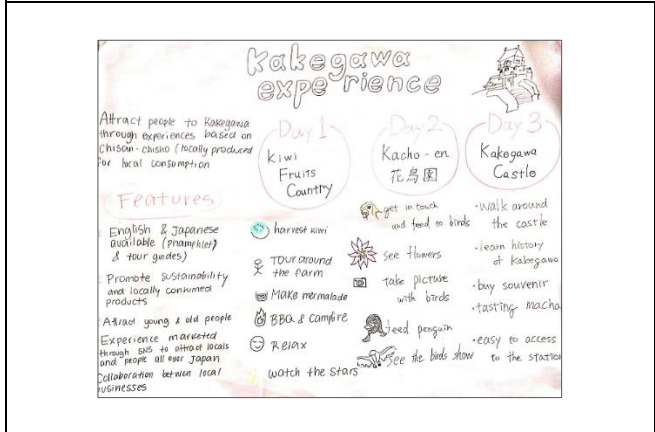 Kakegawa
experience
Attract people to Kakegawa
through experiences based on
Chisan-chisho (locally produced
for local consumption
Features
English & Japanese
available (pnamphlet)
& tour guides)
Promote sustainability
and locally consumed
products
Attract young & old people
Experience marketed
through SNS to attract locals
and people all over Japan
Collaboration betwen local
businesses
Day 1
Kiwi
Fruits
Country
harvest kiwi
Tour around
the farm
Make mermalade
BBQ & campfire
Relax
watch the stars
Day 2
Kacho-en
花鳥園
get in touch
and feed to birds
see flowers
take picture
with birds
feed penguin
see the birds show
Day 3
Kakegawa
Castle
・walk around
the castle
・learn history
of Kakegawa
・buy souvenir
・tasting macha
・easy to access
to the station